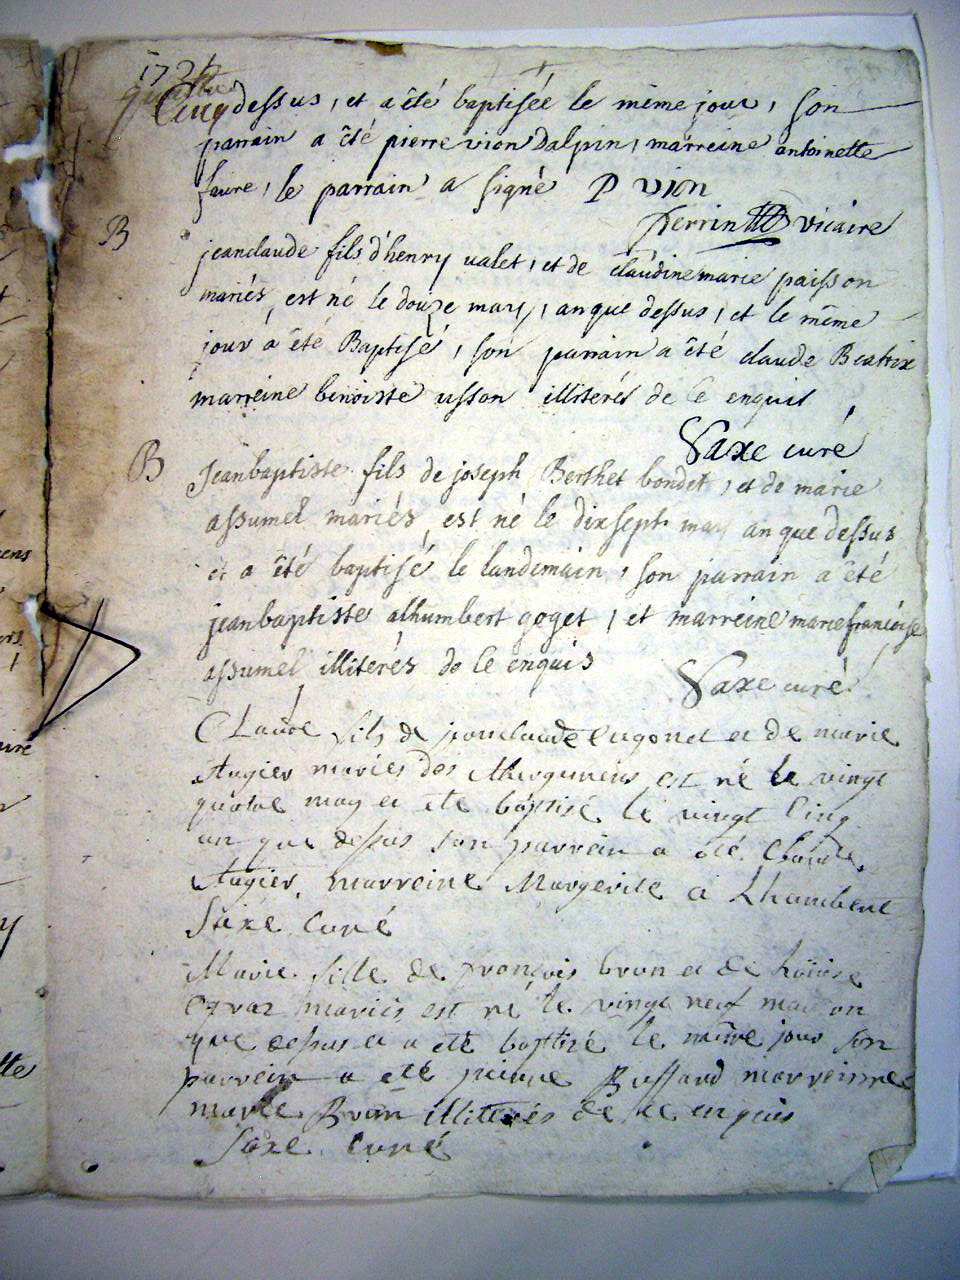 dessus, et a été baptisée le même jour, son
parrain a été pierre vion Dalpin, marreine antoinette
favre, le parrain a signé P vion
Perrin vicaire
B
jeanclaude fils d'henry valet, et de claudinemarie paisson
mariés, est né le douze may, an que dessus, et le même
jour a été Baptisé, son parrain a été claude Beatrix
marreine benoiste usson illiterés de ce enquis
Saxe curé
B
Jeanbaptiste fils de joseph Berthet bondet, et de marie
assumel mariés est né le dixsept may an que dessus
et a été baptisé le landemain, son parrain a été
jeanbaptiste alhumbert goget, et marreine marie françoise
assumel illiterés de ce enquis
Saxe curé
Claude fils de jeanclaude Cugonet et de marie
Augier mariés des est né le vingt
quatre may et eté baptisé le vingt Cinq
an que dessus son parrein a été Claude
Augier, marreine Margerite a Lhumbert
Saxe Curé
Marie fille de François brun et de
mariés est né le vingt neuf mai an
que dessus et a eté baptizé le même jour son
parrein a eté pierre Bussard marreinne
marie Brun illiterés de ce enquis
Saxe Curé